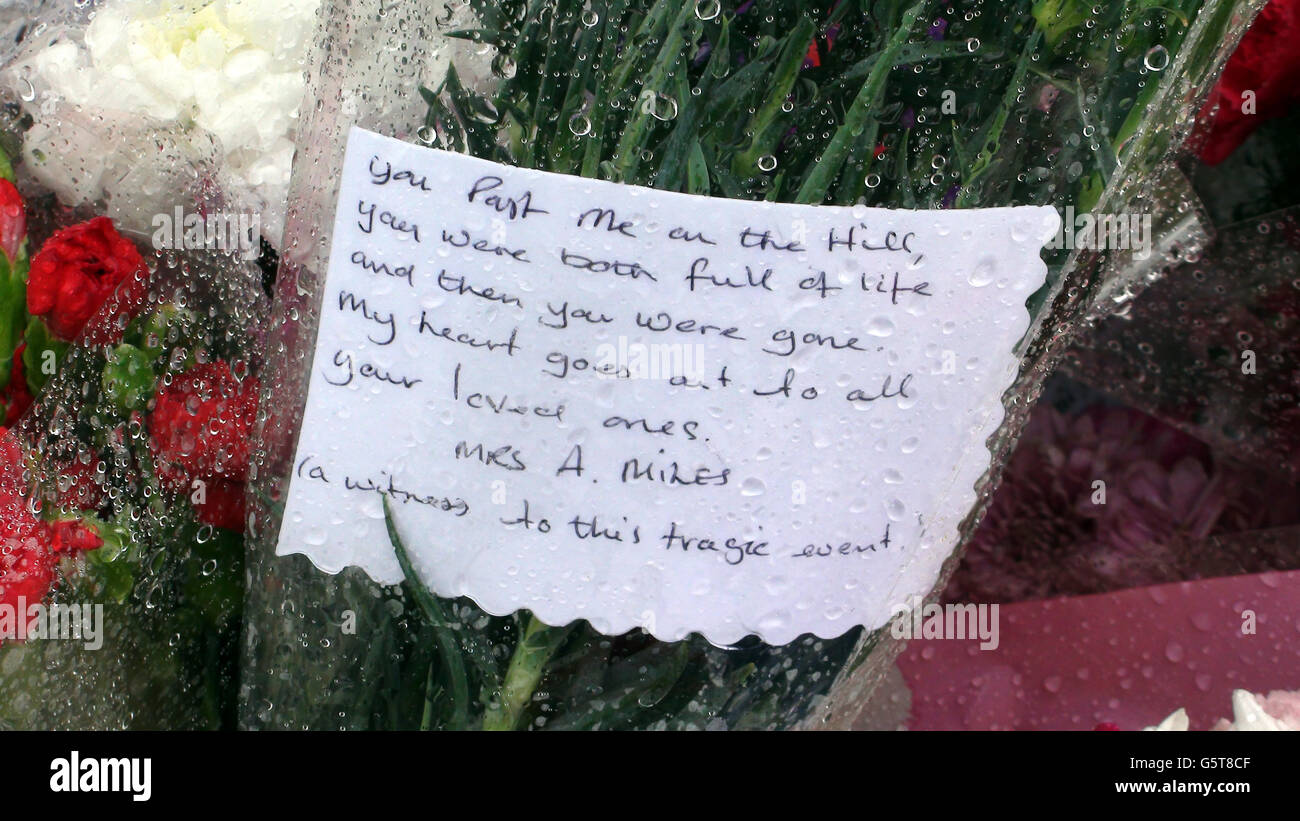 you Past Me on the Hill,
you were both full of life
and then you were gone.
My heart goes out to all
your loved ones.
MRS A. MILES
(a witness to this tragic event.
a
alamy
a
alamy
a
a
a
alamy
Image ID: G5T8CF
www.alamy.com